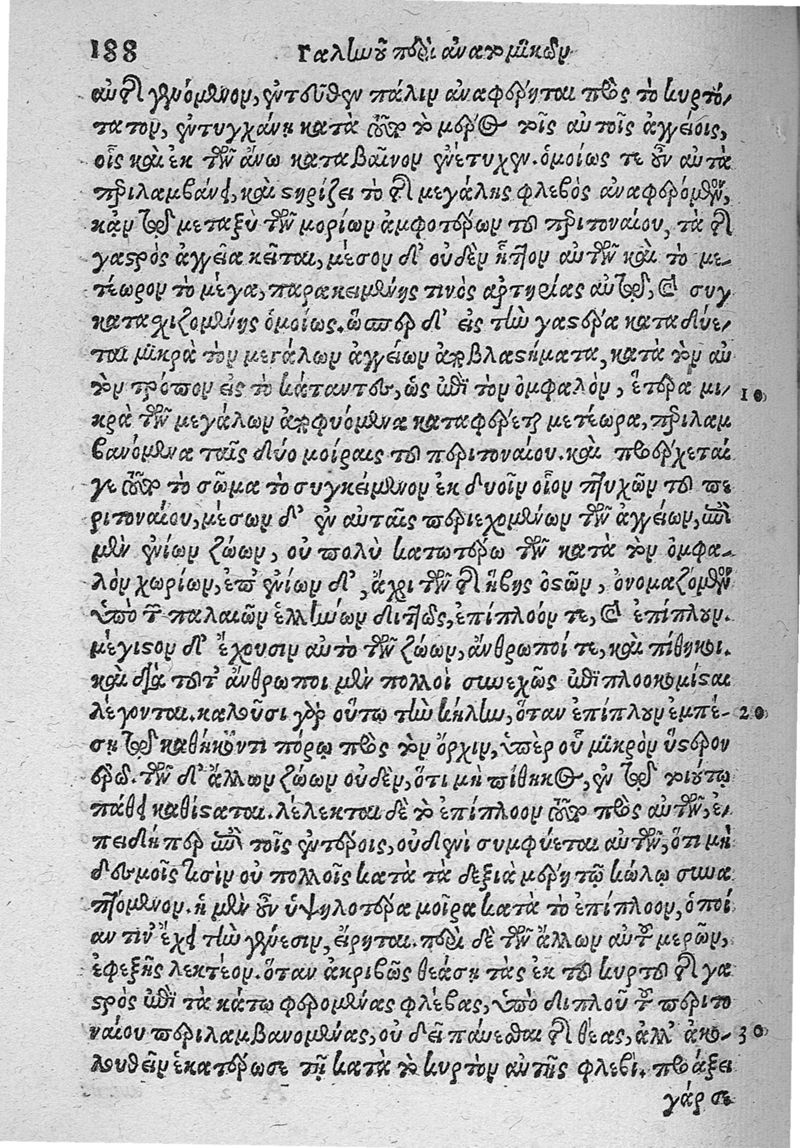 188 Γαλίωοῦ περὶ ἀνατομικῶν
αὐτῆς γενόμενον, ἐντεῦθεν πάλιν ἀναφέρηται πρὸς τὸ κυρτό-
τατον, ἐντυγχάνῃ κατὰ τοῦτο τὸ μέρος τοῖς αὐτοῖς ἀγγείοις,
οἷς καὶ ἐκ τῶν ἄνω καταβαῖνον ἐνέτυχεν. ὁμοίως τε οὖν αὐτὰ
περιλαμβάνει, καὶ στηρίζει τὸ τῆς μεγάλης φλεβὸς ἀναφερόμενον,
κἀν τῷ μεταξὺ τῶν μορίων ἀμφοτέρων τοῦ περιτοναίου, τὰ τῆς
γαστρὸς ἀγγεῖα κεῖται, μέσον δ' οὐδὲν ἧττον αὐτῶν καὶ τὸ με-
τέωρον τὸ μέγα, παρακειμένης τινὸς ἀρτηρίας αὐτῷ, καὶ συγ
κατασχιζομένης ὁμοίως. ὥσπερ δ' εἰς τὴν γαστέρα καταδύε-
ται μικρὰ τῶν μεγάλων ἀγγείων ἀποβλαστήματα, κατὰ τὸν αὐ
τὸν τρόπον εἰς τὸ κάταντες, ὡς ἐπὶ τὸν ὀμφαλὸν, ἕτερα μι- 10
κρὰ τῶν μεγάλων ἀποφυόμενα καταφέρεται μετέωρα, περιλαμ
βανόμενα ταῖς δύο μοίραις τοῦ περιτοναίου. καὶ προσέρχεται
γε τοῦτο τὸ σῶμα τὸ συγκείμενον ἐκ δυοῖν οἷον πτυχῶν τοῦ πε
ριτοναίου, μέσων δ' ἐν αὐταῖς περιεχομένων τῶν ἀγγείων, ἐπὶ
μὲν ἐνίων ζώων, οὐ πολὺ κατωτέρω τῶν κατὰ τὸν ὀμφα-
λὸν χωρίων, ἐπ' ἐνίων δ', ἄχρι τῶν τῆς ἥβης ὀστῶν, ὀνομαζόμενον
ὑπὸ τῶν παλαιῶν ἑλλήνων διττῶς, ἐπίπλοόν τε, καὶ ἐπίπλουν.
μέγιστον δ' ἔχουσιν αὐτὸ τῶν ζώων, ἄνθρωποί τε, καὶ πίθηκοι.
καὶ διὰ τοῦτ' ἄνθρωποι μὲν πολλοὶ συνεχῶς ἐπιπλοοκομίσται
λέγονται. καλοῦσι γὰρ οὕτω τὴν κήλην, ὅταν ἐπίπλουν ἐμπέ- 20
σῃ τῷ καθήκοντι πόρῳ πρὸς τὸν ὄρχιν, ὑπὲρ οὗ μικρὸν ὕστερον
ἐρῶ. τῶν δ' ἄλλων ζώων οὐδὲν, ὅτι μὴ πίθηκος, ἐν τῷ τοιούτῳ
πάθει καθίσταται. λέλεκται δὲ τὸ ἐπίπλοον τοῦτο πρὸς αὐτῶν, ἐ-
πειδήπερ ἐπὶ τοῖς ἐντέροις, οὐδενὶ συμφύεται αὐτῶν, ὅτι μὴ
δεσμοῖς τισὶν οὐ πολλοῖς κατὰ τὰ δεξιὰ μέρη τῷ κώλῳ συνα
πτόμενον. ἡ μὲν οὖν ὑψηλοτέρα μοῖρα κατὰ τὸ ἐπίπλοον, ὁποί
αν τιν' ἔχει τὴν γένεσιν, εἴρηται. περὶ δὲ τῶν ἄλλων αὐτοῦ μερῶν,
ἐφεξῆς λεκτέον. ὅταν ἀκριβῶς θεάσῃ τὰς ἐκ τοῦ κυρτοῦ τῆς γα
στρὸς ἐπὶ τὰ κάτω φερομένας φλέβας, ὑπὸ διπλοῦ τοῦ περιτο
ναίου περιλαμβανομένας, οὐ δεῖ παύεσθαι τῆς θέας, ἀλλ' ἀκο- 30
λουθεῖν ἑκατέρωσε τῇ κατὰ τὸ κυρτὸν αὐτῆς φλεβὶ. προάξει
γάρ σε